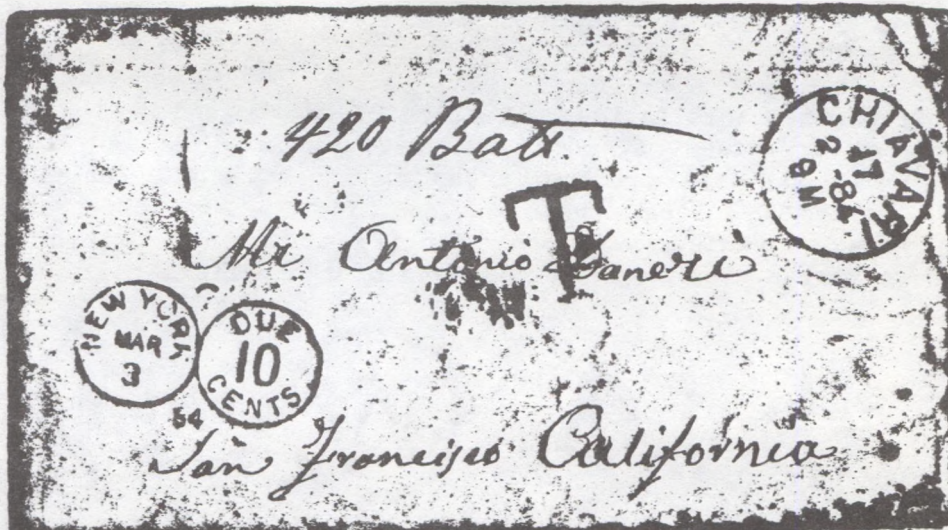 420 Batt.
CHIAVARI
17
2-84
8M
T
Mr Antonio Daneri
NEW YORK
MAR
3
DUE
10
CENTS
54
San Francisco California